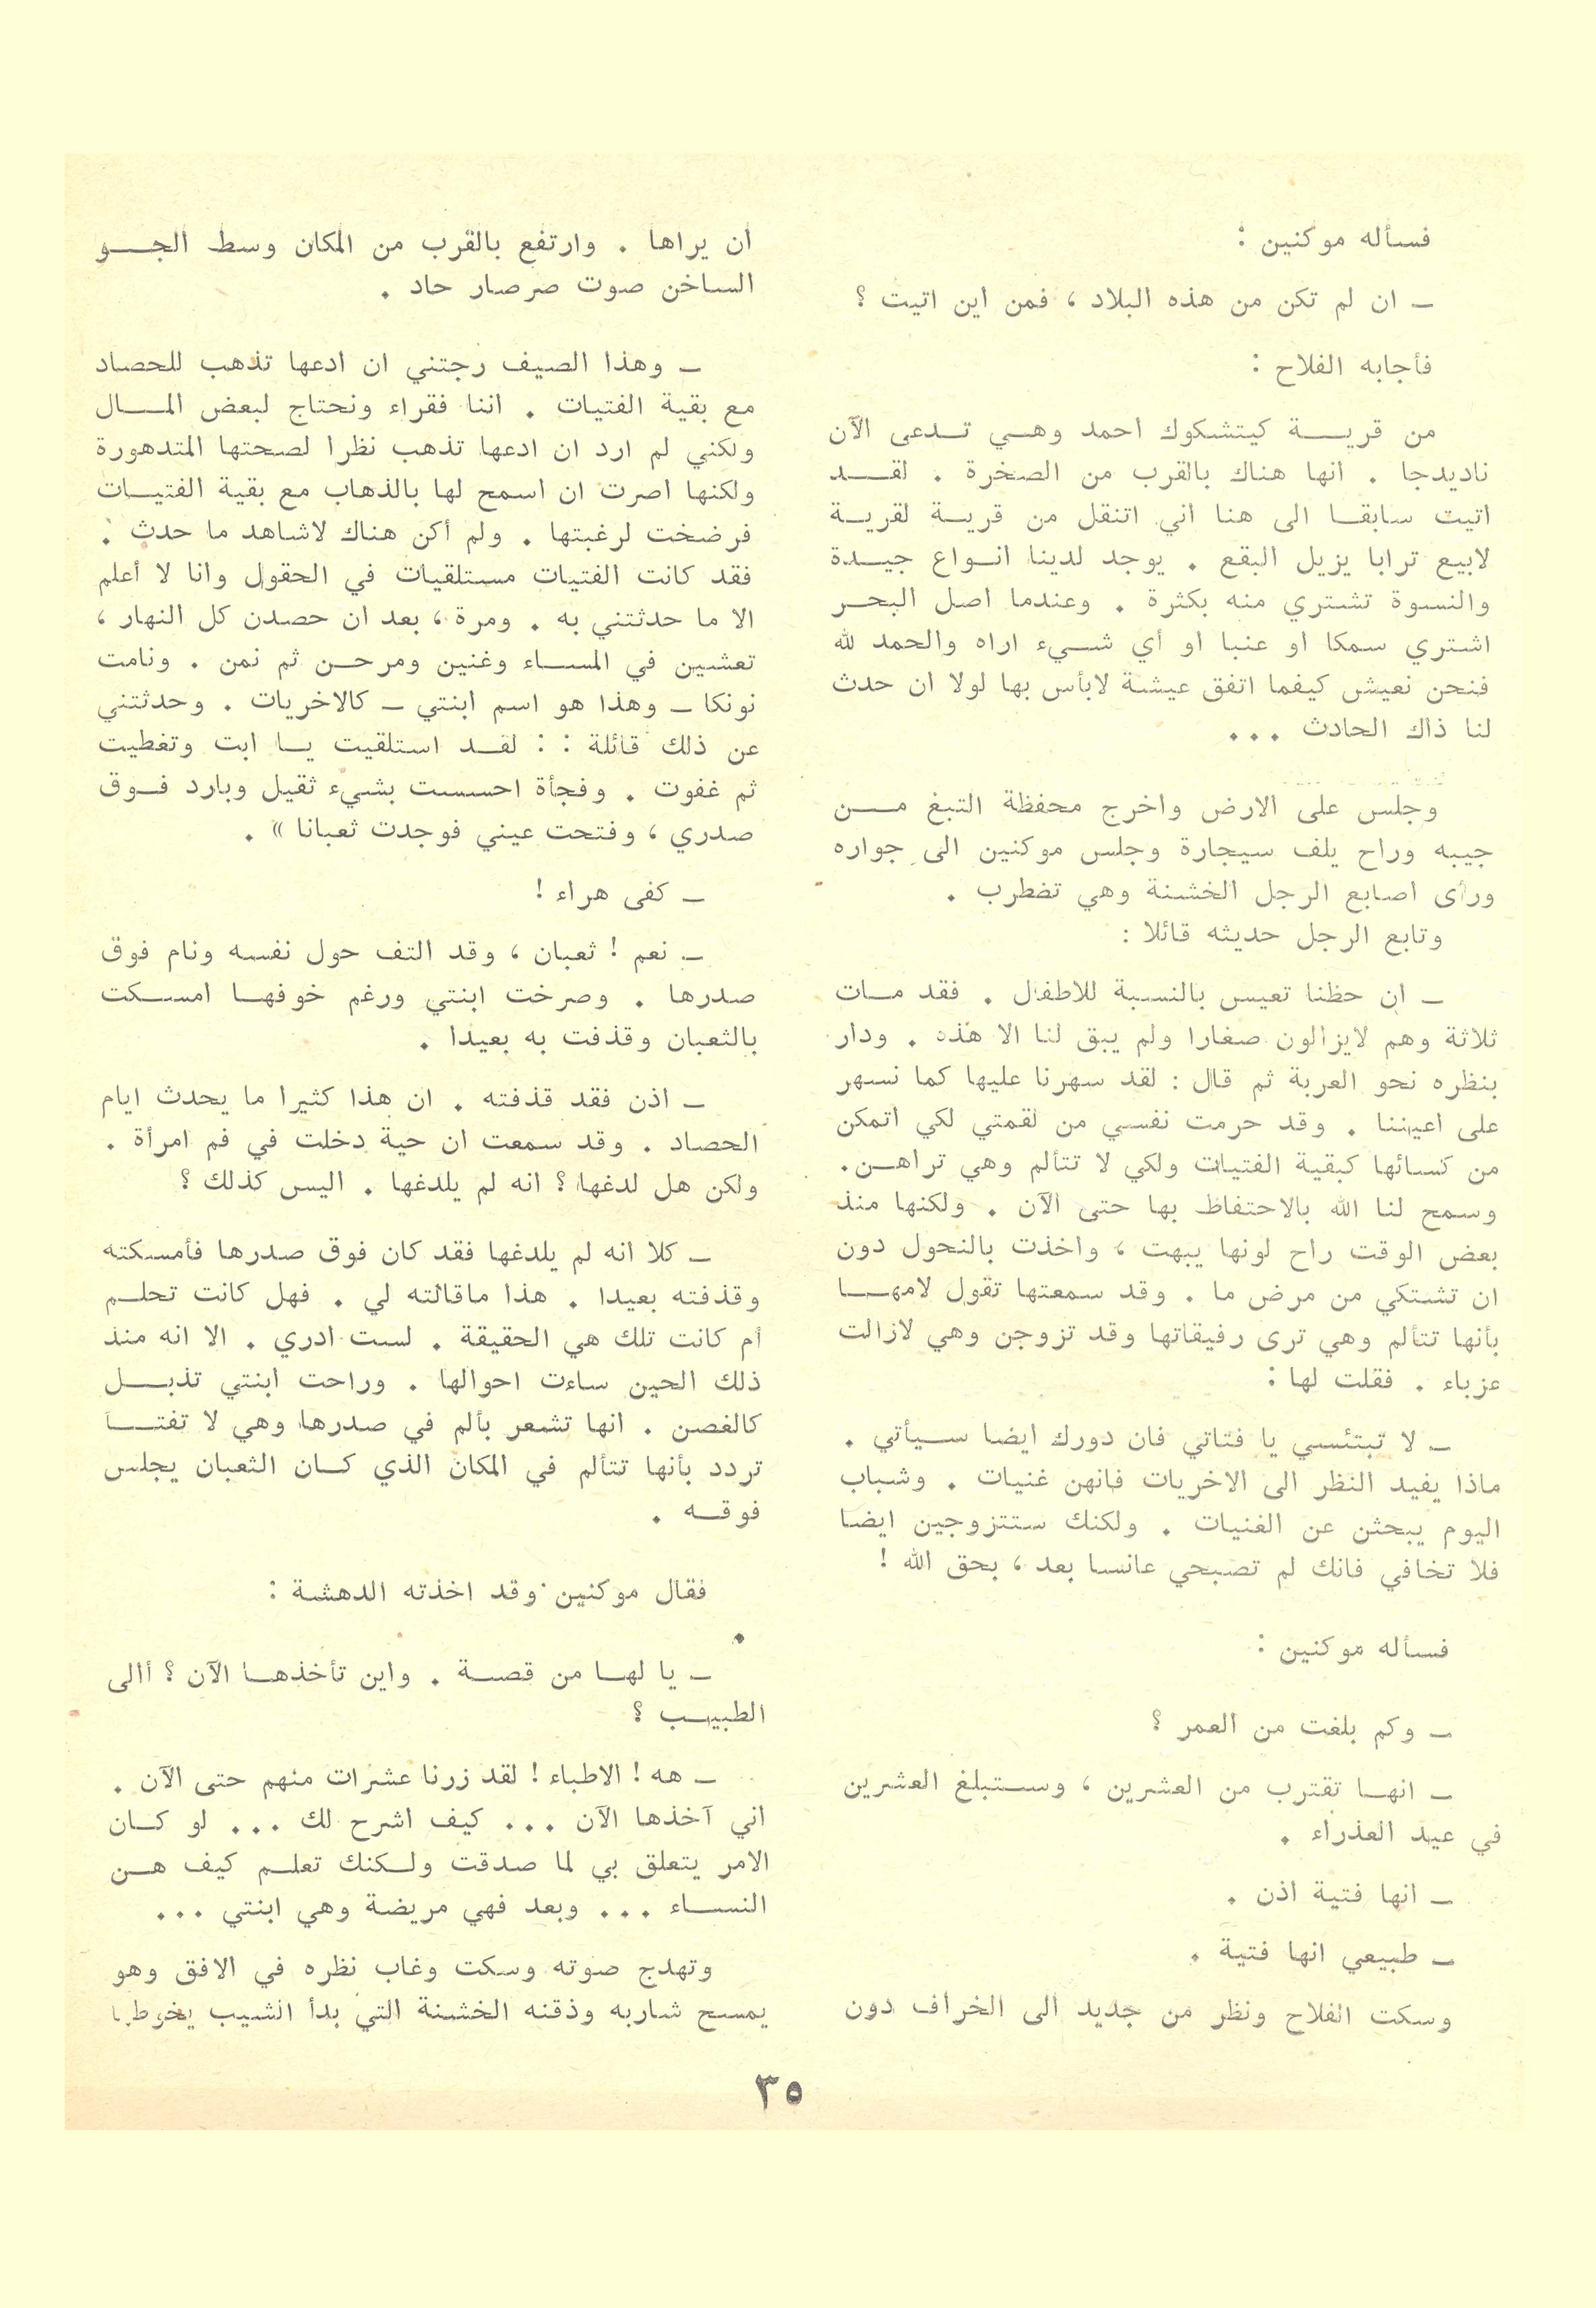 فسأله موكنين :
ـ ان لم تكن من هذه البلاد ، فمن اين اتيت ؟
فأجابه الفلاح :
من قريــة كيتشكوك احمد وهــي تــدعى الآن
ناديدجا . انها هناك بالقرب من الصخرة . لقــد
اتيت سابقــا الى هنا اني اتنقل من قريــة لقريــة
لابيع ترابا يزيل البقع . يوجد لدينا انــواع جيــدة
والنسوة تشتري منه بكثرة . وعندما اصل البحــر
اشتري سمكا او عنبا او أي شــيء اراه والحمد لله
فنحن نعيش كيفما اتفق عيشة لابأس بها لولا ان حدث
لنا ذاك الحادث ...
وجلس على الارض واخرج محفظة التبغ مــن
جيبه وراح يلف سيجارة وجلس موكنين الى جواره
ورأى اصابع الرجل الخشنة وهي تضطرب .
وتابع الرجل حديثه قائلا :
ـ ان حظنا تعيس بالنسبة للاطفال . فقد مــات
ثلاثة وهم لايزالون صغارا ولم يبق لنا الا هذه . ودار
بنظره نحو العربة ثم قال : لقد سهرنا عليها كما نسهر
على اعيننا . وقد حرمت نفسي من لقمتي لكي اتمكن
من كسائها كبقية الفتيات ولكي لا تتألم وهي تراهــن.
وسمح لنا الله بالاحتفاظ بها حتى الآن . ولكنها منذ
بعض الوقت راح لونها يبهت ، واخذت بالنحول دون
ان تشتكي من مرض ما . وقد سمعتها تقول لامهــا
بأنها تتألم وهي ترى رفيقاتها وقد تزوجن وهي لازالت
عزباء . فقلت لها :
ـ لا تبتئسي يا فتاتي فان دورك ايضا ســيأتي .
ماذا يفيد النظر الى الاخريات فانهن غنيات . وشباب
اليوم يبحثن عن الغنيات . ولكنك ستتزوجين ايضا
فلا تخافي فانك لم تصبحي عانسا بعد ، بحق الله !
فسأله موكنين :
ـ وكم بلغت من العمر ؟
ـ انهــا تقترب من العشرين ، وســتبلغ العشرين
في عيد العذراء .
ـ انها فتية اذن .
ـ طبيعي انها فتية .
وسكت الفلاح ونظر من جديد الى الخراف دون
ان يراها . وارتفع بالقرب من المكان وسط الجــو
الساخن صوت صرصار حاد .
ـ وهذا الصيف رجتني ان ادعها تذهب للحصاد
مع بقية الفتيات . اننا فقراء ونحتاج لبعض المــال
ولكني لم ارد ان ادعها تذهب نظرا لصحتها المتدهورة
ولكنها اصرت ان اسمح لها بالذهاب مع بقية الفتيــات
فرضخت لرغبتها . ولم أكن هناك لاشاهد ما حدث :
فقد كانت الفتيات مستلقيات في الحقول وانا لا أعلم
الا ما حدثتني به . ومرة ، بعد ان حصدن كل النهار ،
تعشين في المســاء وغنين ومرحــن ثم نمن . ونامت
نونكا ـ وهذا هو اسم ابنتي ـ كالاخريات . وحدثتني
عن ذلك قائلة : : لقــد استلقيت يــا ابت وتغطيت
ثم غفوت . وفجأة احسست بشيء ثقيل وبارد فــوق
صدري ، وفتحت عيني فوجدت ثعبانا » .
ـ كفى هراء !
ـ نعم ! ثعبان ، وقد التف حول نفسه ونام فوق
صدرها . وصرخت ابنتي ورغم خوفهــا امســكت
بالثعبان وقذفت به بعيدا .
ـ اذن فقد قذفته . ان هذا كثيرا ما يحدث ايام
الحصاد . وقد سمعت ان حية دخلت في فم امرأة .
ولكن هل لدغها ؟ انه لم يلدغها . اليس كذلك ؟
ـ كلا انه لم يلدغها فقد كان فوق صدرها فأمسكته
وقذفته بعيدا . هذا ماقالته لي . فهل كانت تحلــم
أم كانت تلك هي الحقيقة . لست ادري . الا انه منذ
ذلك الحين ساءت احوالها . وراحت ابنتي تذبــل
كالغصن . انها تشعر بألم في صدرها وهي لا تفتــأ
تردد بأنها تتألم في المكان الذي كــان الثعبان يجلس
فوقــه .
فقال موكنين وقد اخذته الدهشة :
ـ يا لهــا من قصــة . واين تأخذهــا الآن ؟ أالى
الطبيــب ؟
ـ هه ! الاطباء ! لقد زرنا عشرات منهم حتى الآن .
اني آخذها الآن ... كيف اشرح لك ... لو كــان
الامر يتعلق بي لما صدقت ولــكنك تعلــم كيف هــن
النســاء ... وبعد فهي مريضة وهي ابنتي ...
وتهدج صوته وسكت وغاب نظره في الافق وهو
يمسح شاربه وذقنه الخشنة التي بدأ الشيب
٣٥